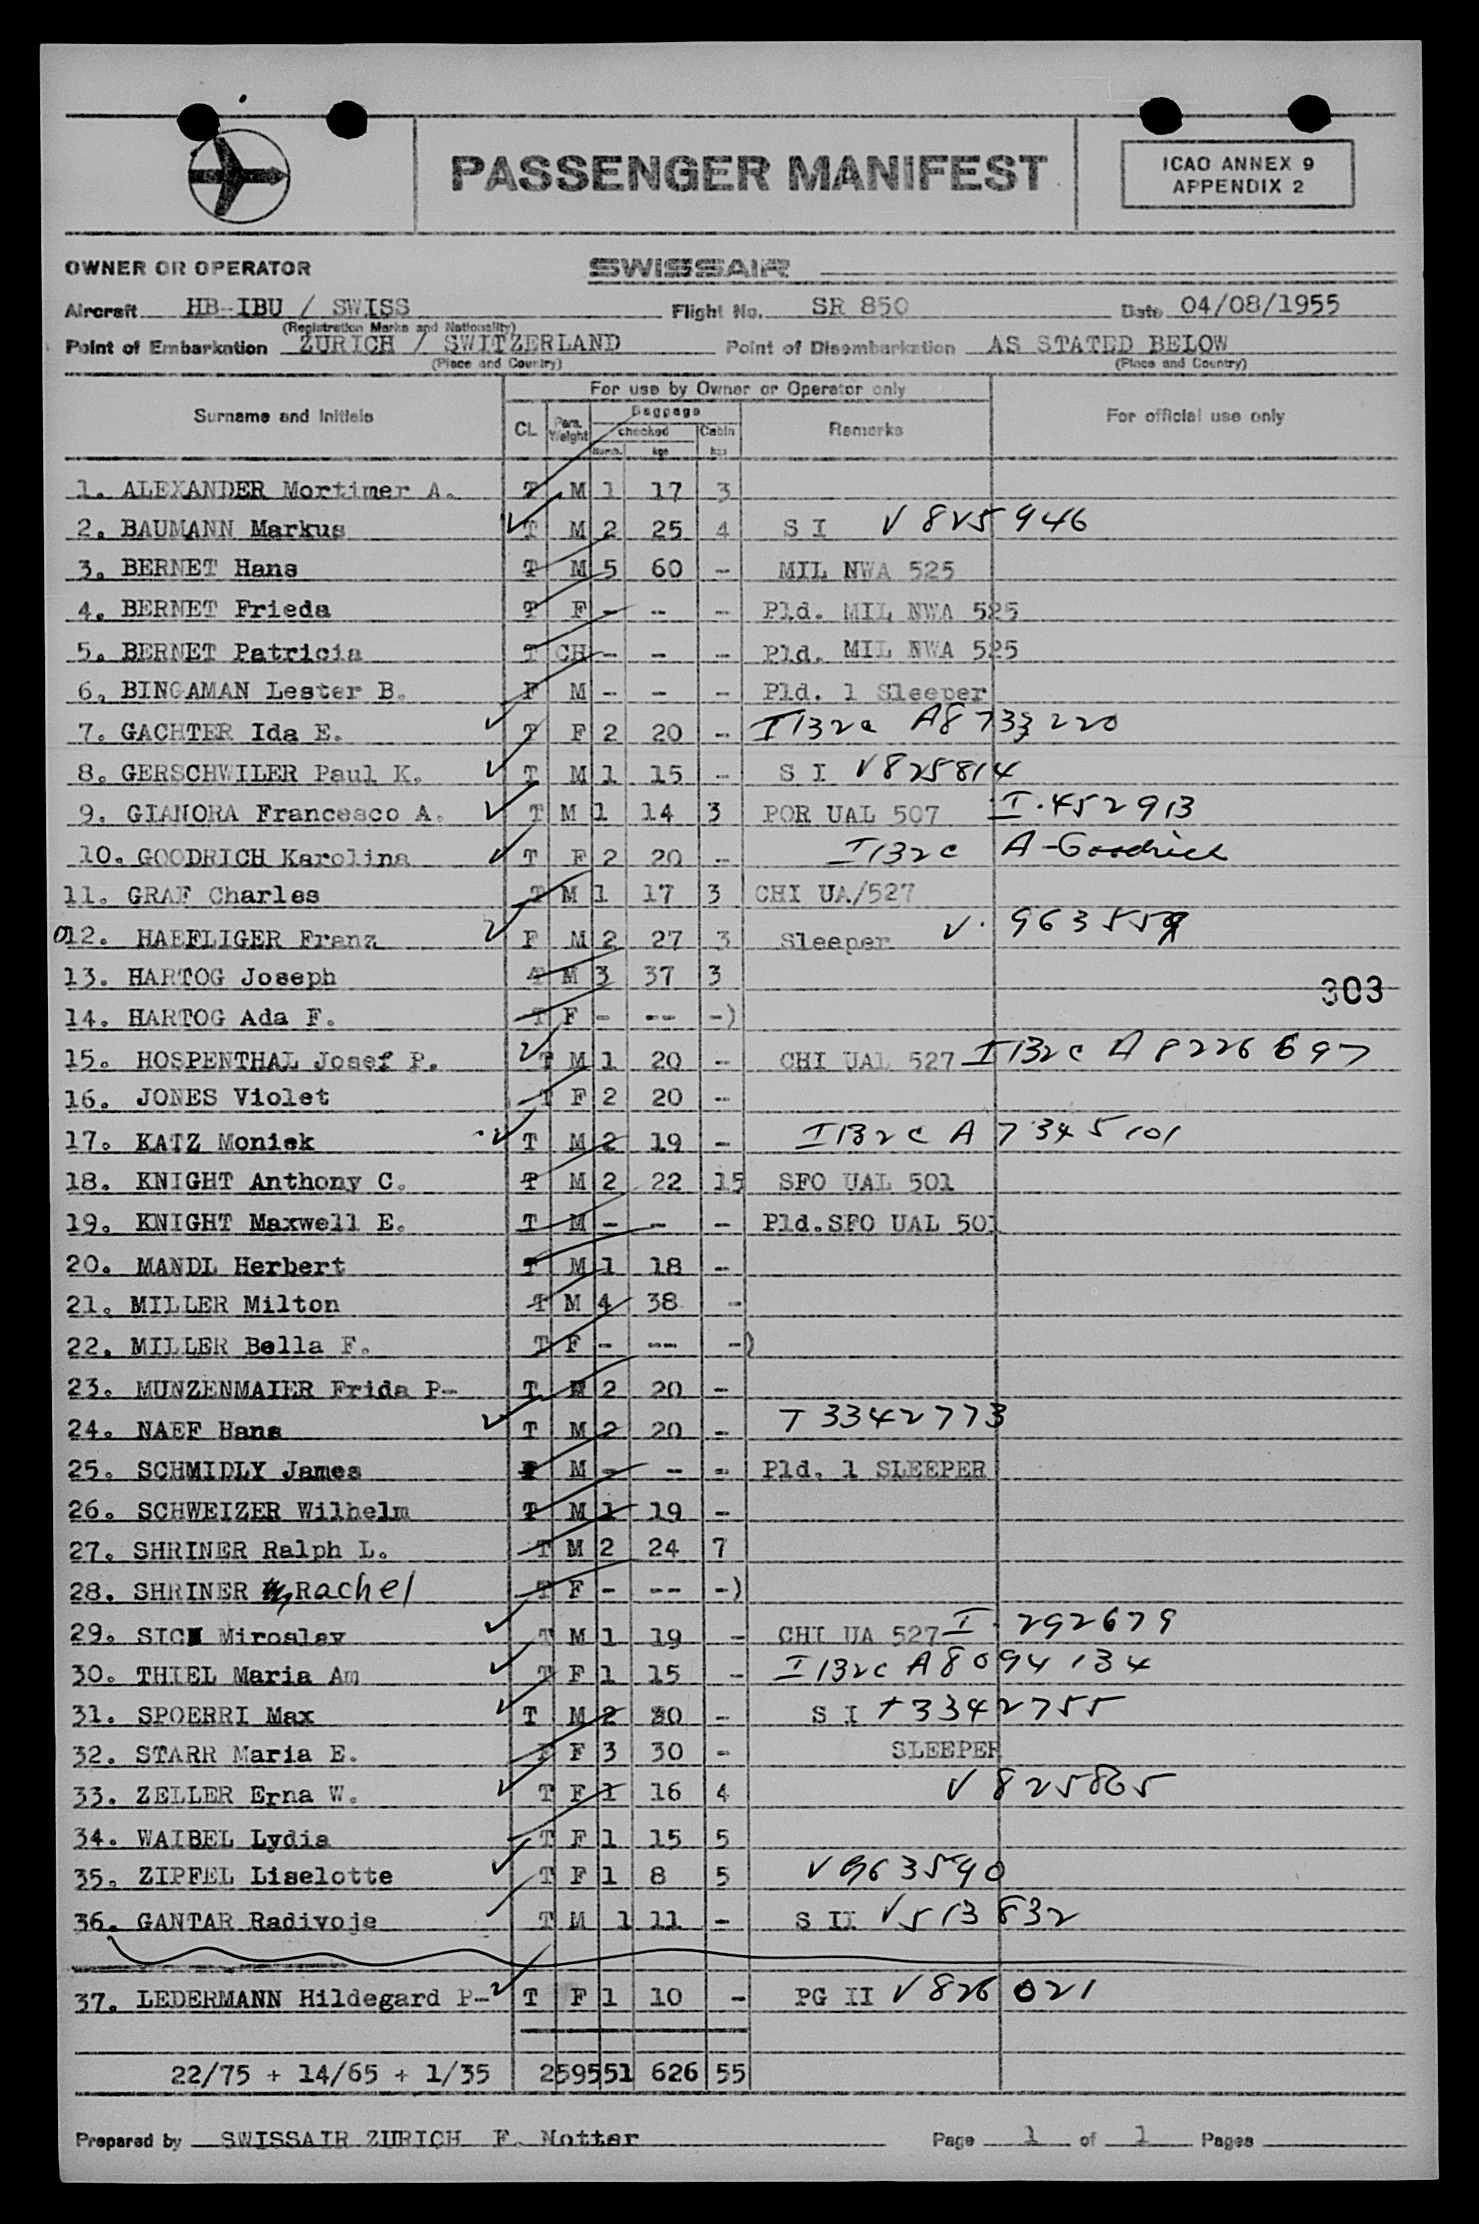 PASSENGER MANIFEST
ICAO ANNEX 9
APPENDIX 2
OWNER OR OPERATOR SWISSAIR
Aircraft HB-IBU / SWISS Flight No. SR 850 Date 04/08/1955
(Registration Marks and Nationality)
Point of Embarkation ZURICH / SWITZERLAND Point of Disembarkation AS STATED BELOW
(Place and Country) (Place and Country)
For use by Owner or Operator only
Surname and Initials CL Pass. Weight Baggage checked Numb. kgs Cabin kgs Remarks For official use only
1. ALEXANDER Mortimer A. T M 1 17 3
2. BAUMANN Markus T M 2 25 4 S I V 825946
3. BERNET Hans T M 5 60 - MIL NWA 525
4. BERNET Frieda T F - -- -- Pld. MIL NWA 525
5. BERNET Patricia T CH - - -- Pld. MIL NWA 525
6. BINGAMAN Lester B. F M - - - Pld. 1 Sleeper
7. GACHTER Ida E. T F 2 20 - I132c A8733220
8. GERSCHWILER Paul K. T M 1 15 - S I V825814
9. GIANORA Francesco A. T M 1 14 3 POR UAL 507 I.452913
10. GOODRICH Karolina T F 2 20 - I132c A-Goodrich
11. GRAF Charles T M 1 17 3 CHI UA/527
12. HAEFLIGER Franz F M 2 27 3 Sleeper V. 963559
13. HARTOG Joseph T M 3 37 3
303
14. HARTOG Ada F. T F - -- -)
15. HOSPENTHAL Josef P. T M 1 20 - CHI UAL 527 I132c A 8226697
16. JONES Violet T F 2 20 -
17. KATZ Moniek T M 2 19 - I132c A 7345101
18. KNIGHT Anthony C. T M 2 22 15 SFO UAL 501
19. KNIGHT Maxwell E. T M - - - Pld.SFO UAL 501
20. MANDL Herbert T M 1 18 -
21. MILLER Milton T M 4 38 -
22. MILLER Bella F. T F - -- -)
23. MUNZENMAIER Frida P- T 2 20 -
24. NAEF Hans T M 2 20 - T 3342773
25. SCHMIDLY James M - - - Pld. 1 SLEEPER
26. SCHWEIZER Wilhelm T M 1 19 -
27. SHRINER Ralph L. T M 2 24 7
28. SHRINER Rachel T F - -- -)
29. Miroslav T M 1 19 - CHI UA 527 I. 292679
30. THIEL Maria Am T F 1 15 - I132c A8094134
31. SPOERRI Max T M 2 20 - S I T3342755
32. STARR Maria E. F F 3 30 - SLEEPER
33. ZELLER Erna W. T F 1 16 4 V 825865
34. WAIBEL Lydia T F 1 15 5
35. ZIPFEL Liselotte T F 1 8 5 V 963590
36. GANTAR Radivoje T M 1 11 - S II V513832
37. LEDERMANN Hildegard P- T F 1 10 - PG II V826021
22/75 + 14/65 + 1/35 259551 626 55
Prepared by SWISSAIR ZURICH F. Notter Page 1 of 1 Pages